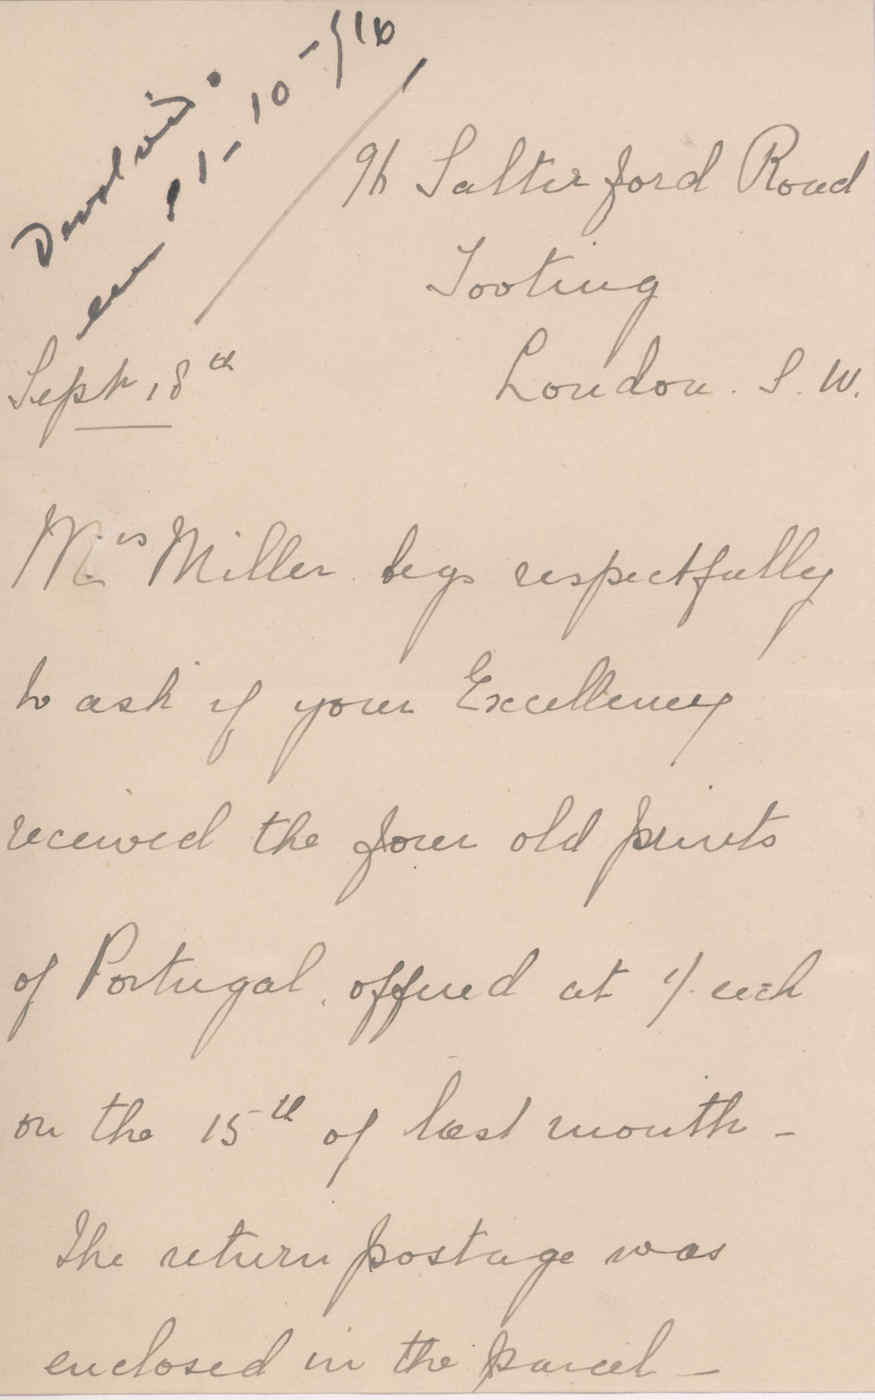 Devolvi.
em 11-10-916
96 Salterford Road
Tooting
London. S. W.
Sept 18th
Mrs Miller begs respectfully
to ask if your Excellency
received the four old prints
of Portugal, offered at 1/. each
on the 15th of last month -
The return postage was
enclosed in the parcel -